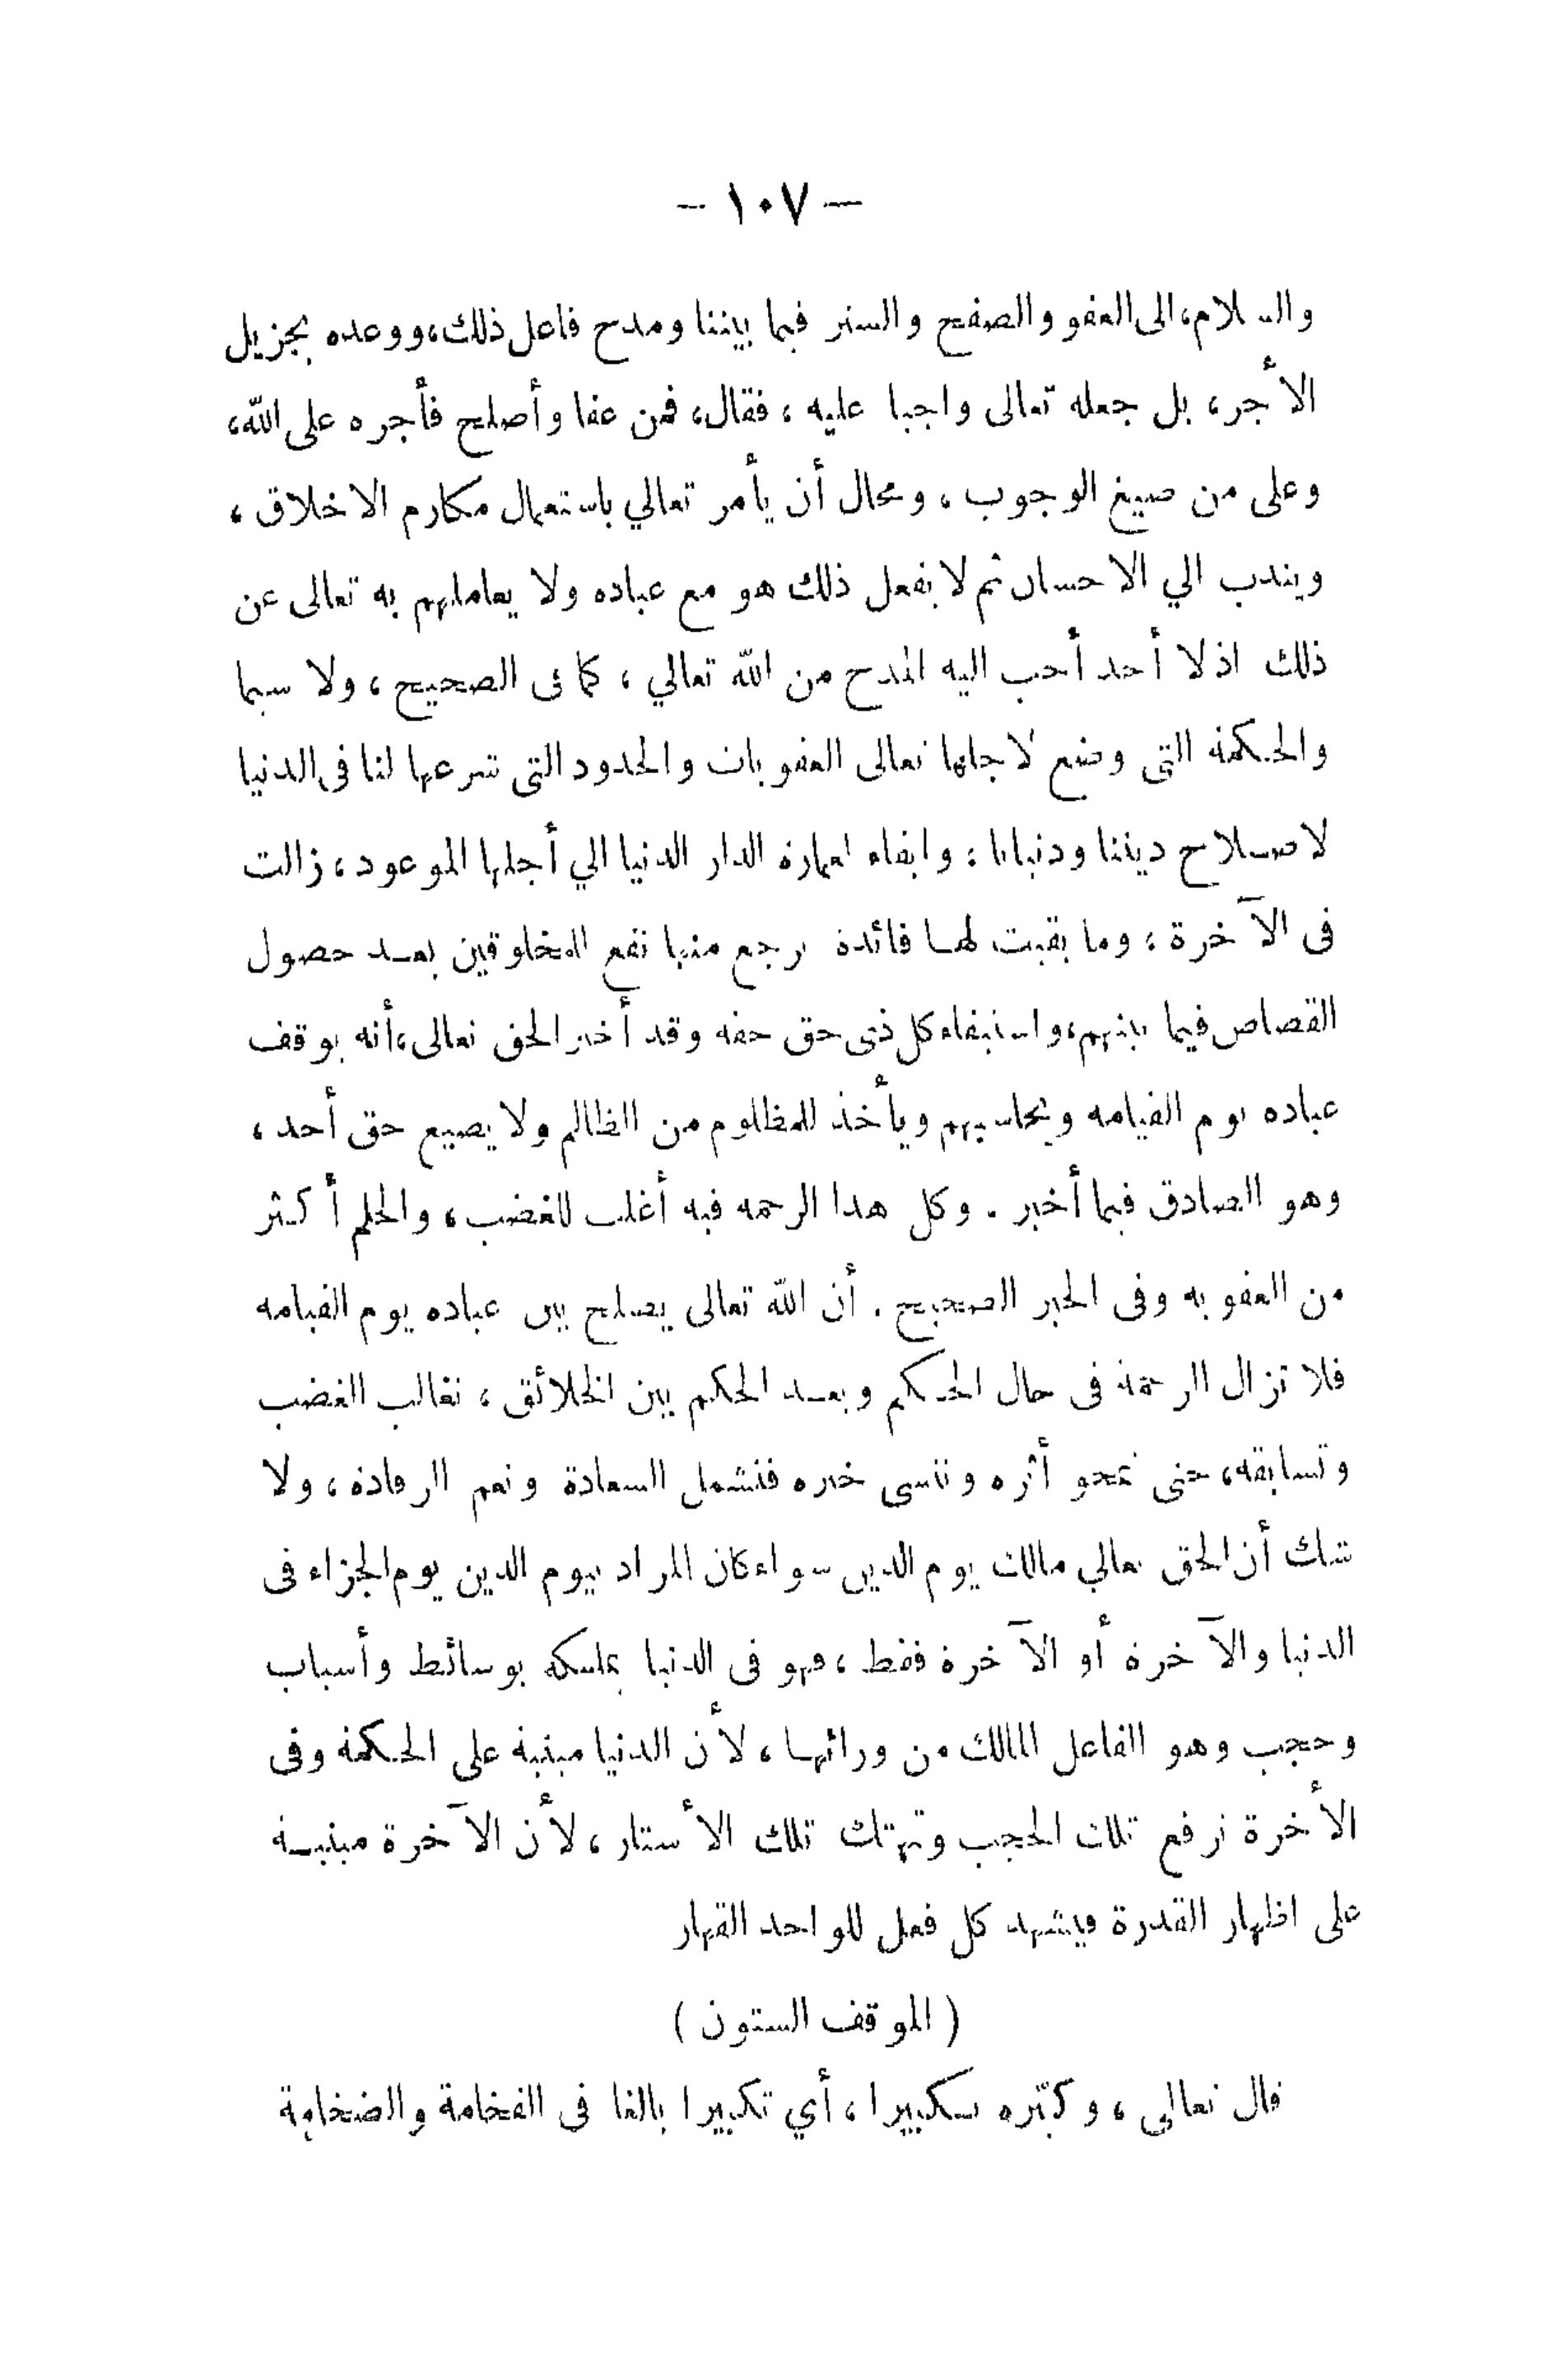 — ١٠٧ —
والسلام، الى العفو والصفح والستر فيما بيننا ومدح فاعل ذلك، ووعده بجزيل
الأجر، بل جعله تعالى واجبا عليه، فقال، فمن عفا وأصلح فأجره على الله،
وعلى من صيغ الوجوب، ومحال أن يأمر تعالي باستعمال مكارم الاخلاق،
ويندب الي الاحسان ثم لا يفعل ذلك هو مع عباده ولا يعاملهم به تعالى عن
ذلك اذ لا أحد أحب اليه المدح من الله تعالي، كما فى الصحيح، ولا سيما
والحكمة التى وضع لأجلها تعالى العقوبات والحدود التى شرعها لنا فى الدنيا
لاصلاح ديننا ودنيانا، وابقاء لعمارة الدار الدنيا الي أجلها الموعود، زالت
فى الآخرة، وما بقيت لها فائدة يرجع منها نفع للمخلوقين بعد حصول
القصاص فيما بينهم، واستيفاء كل ذى حق حقه وقد أخبر الحق تعالى، أنه يوقف
عباده يوم القيامه ويحاسبهم ويأخذ للمظلوم من الظالم ولا يضيع حق أحد،
وهو الصادق فيما أخبر. وكل هذا الرحمه فيه أغلب للغضب، والحلم أكثر
من العقوبه وفى الخبر الصحيح. أن الله تعالى يصلح بين عباده يوم القيامه
فلا تزال الرحمة فى حال الحكم وبعد الحكم بين الخلائق، تغالب الغضب
وتسابقه، حتى تمحو أثره وتنسى خبره فتشمل السعادة وتعم الرفادة، ولا
شك أن الحق تعالي مالك يوم الدين سواء كان المراد بيوم الدين يوم الجزاء فى
الدنيا والآخرة أو الآخرة فقط، فهو فى الدنيا يملكه بوسائط وأسباب
وحجب وهو الفاعل المالك من ورائها، لأن الدنيا مبنية على الحكمة وفى
الأخرة ترفع تلك الحجب وتهتك تلك الأستار، لأن الآخرة مبنية
على اظهار القدرة فيشهد كل فعل للواحد القهار
( الموقف الستون )
قال تعالى، وكبّره تكبيرا، أي تكبيرا بالغا فى الفخامة والضخامة